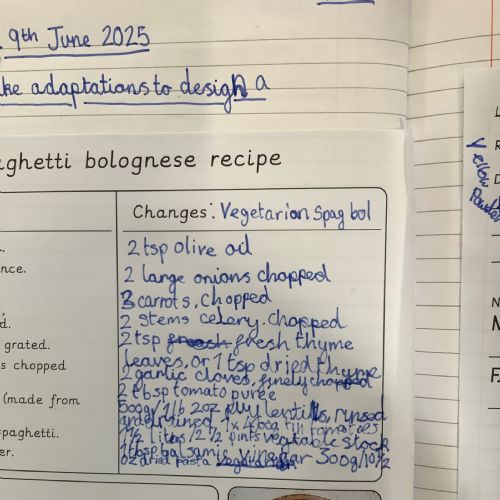 9th June 2025
ke adaptations to design a
aghetti bolognese recipe
Changes: Vegetarian Spag bol
2 tsp olive oil
2 large onions chopped
3 carrots, chopped
2 stems celery, chopped
2 tsp fresh thyme
leaves, or 1 tsp dried thyme
2 garlic cloves, finely chopped
2 tbsp tomato purée
500g/1lb 2oz puy lentills, rynsed
and drained, 1x 400g tin tomatoes
1½ litas/2½ pints veatable stock
1tbsp balsamic vinegar 300g/10½
oz dried pasta
nce.
d.
grated.
s chopped
(made from
paghetti.
er.
Yellow